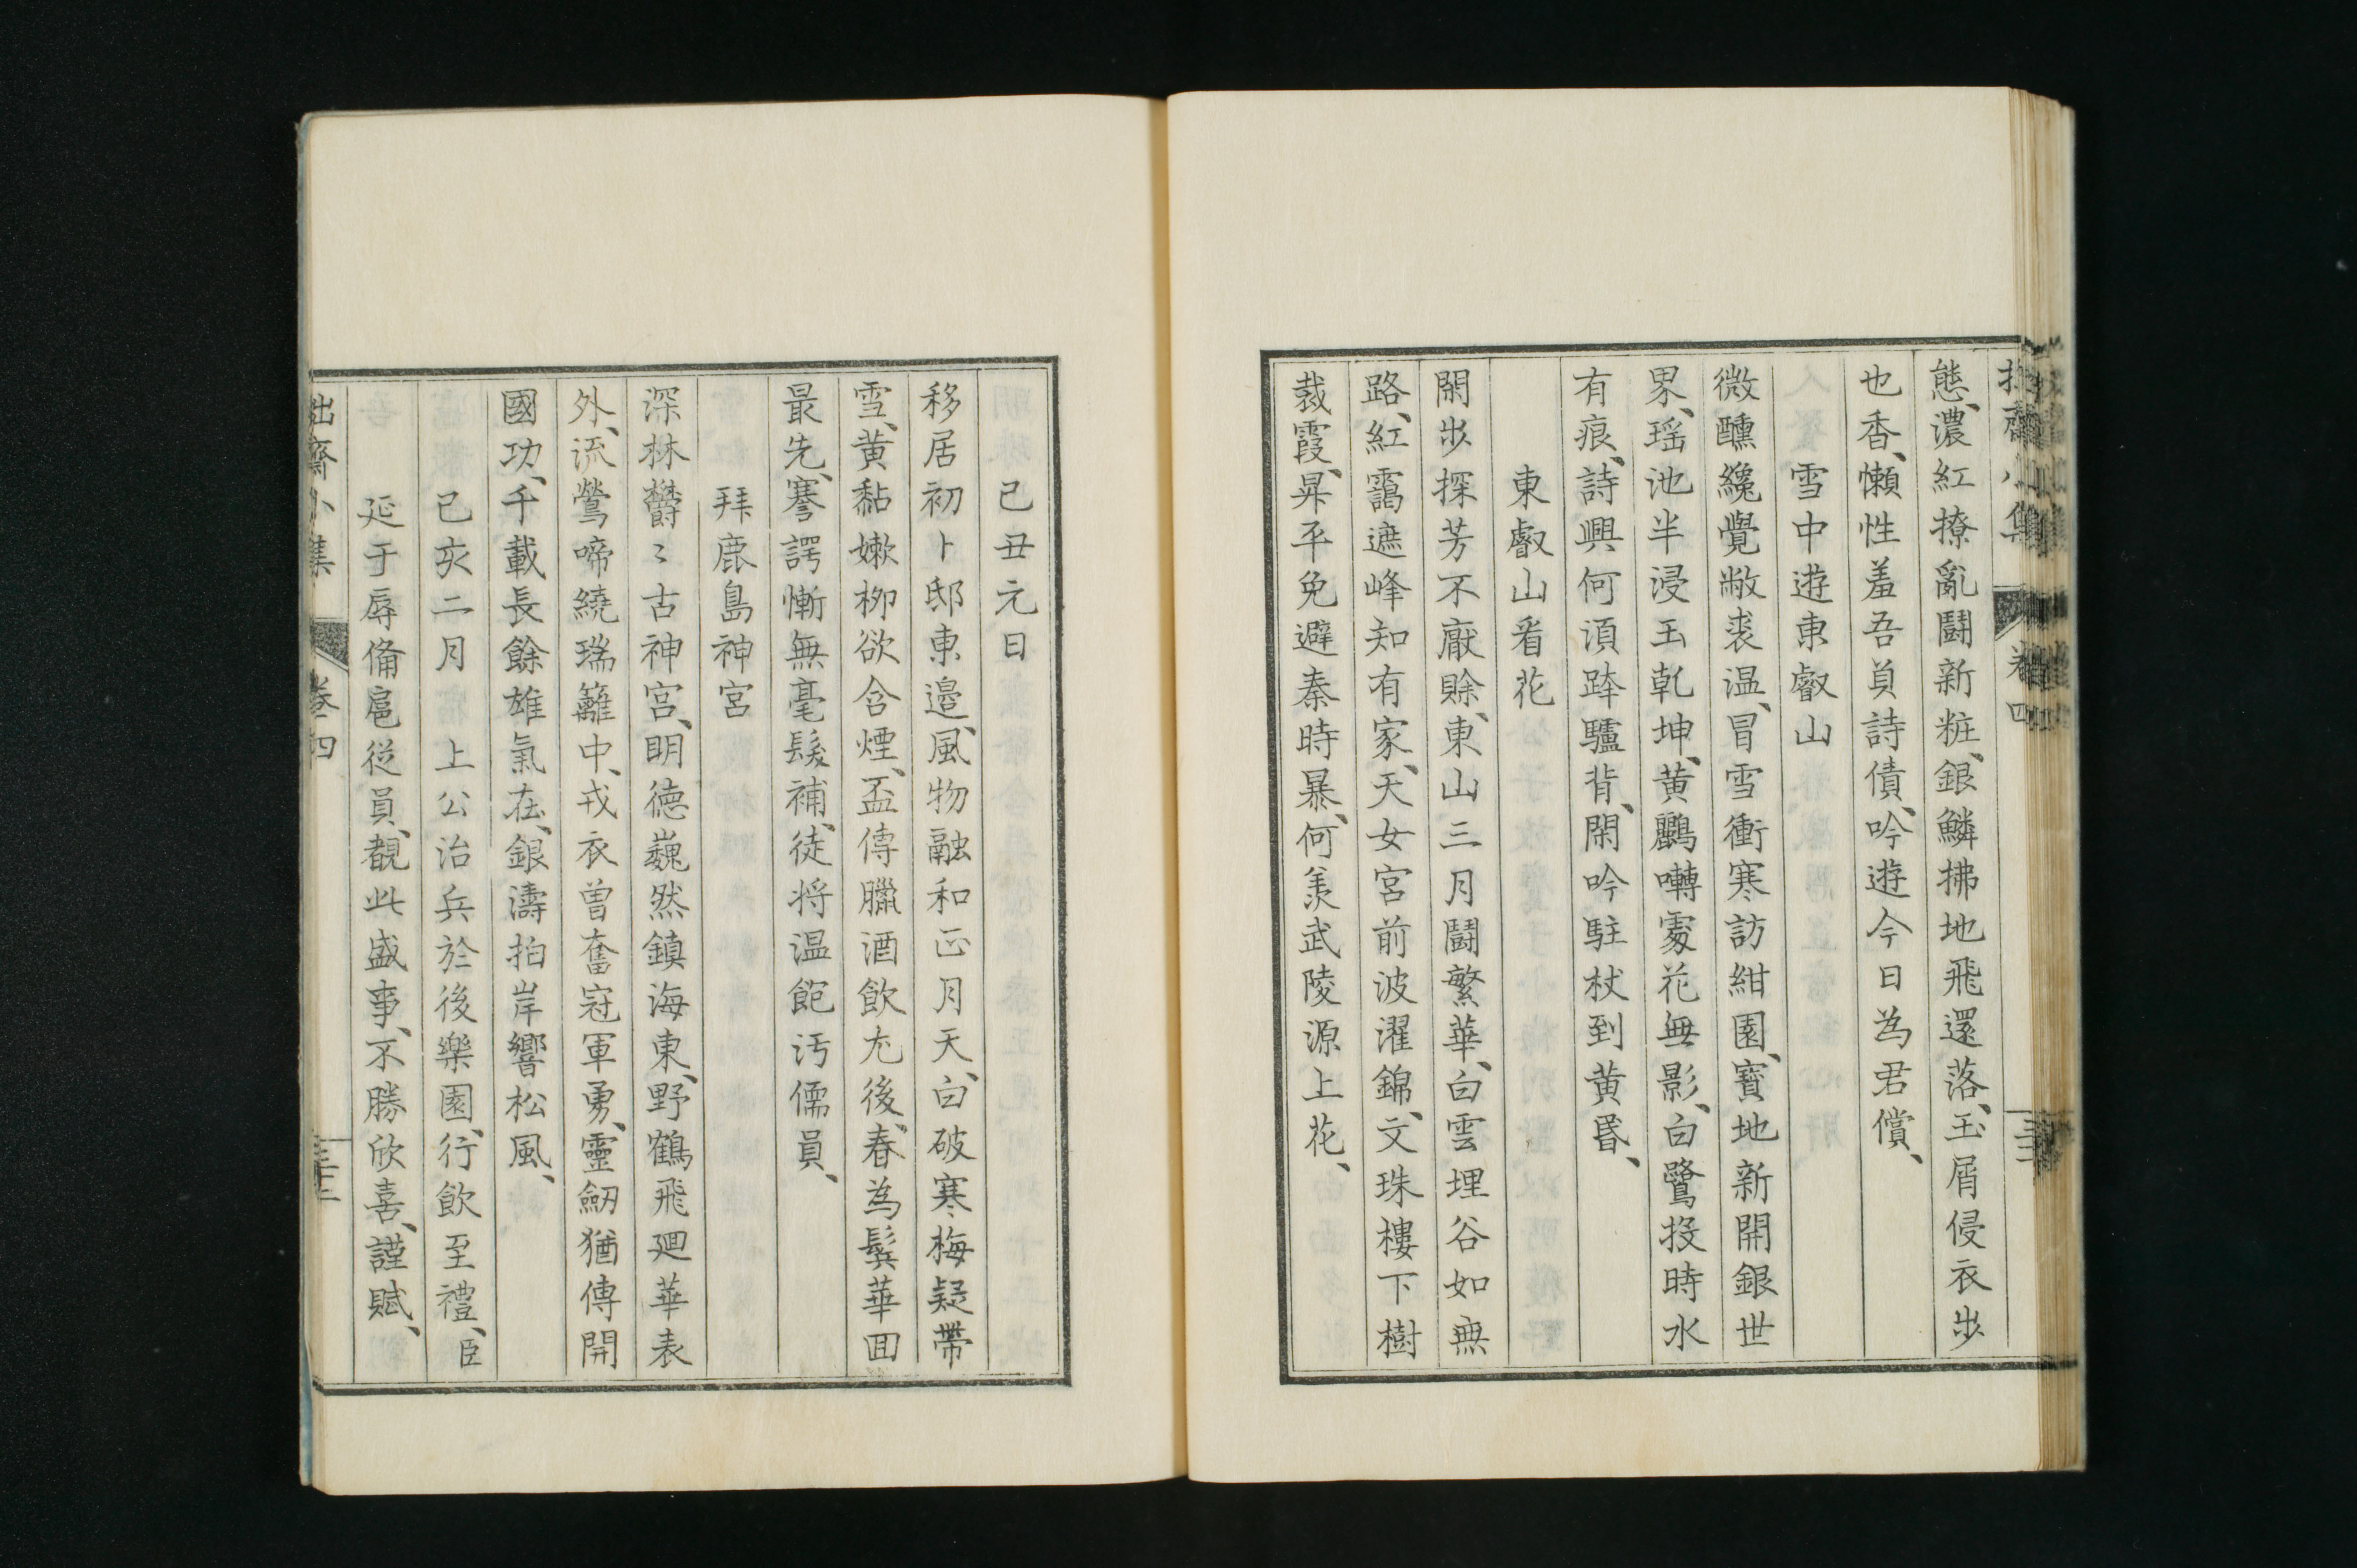 拙齋小集 卷四
態、濃紅撩亂鬪新粧、銀鱗拂地飛還落、玉屑侵衣步
也香、懶性羞吾負詩債、吟遊今日為君償、
雪中遊東叡山
微醺纔覺敝裘温、冒雪衝寒訪紺園、寶地新開銀世
界、瑶池半浸玉乾坤、黄鸝囀處花無影、白鷺投時水
有痕、詩興何須跨驢背、閑吟駐杖到黄昏、
東叡山看花
閑步探芳不厭賒、東山三月鬪繁華、白雲埋谷如無
路、紅靄遮峰知有家、天女宮前波濯錦、文珠樓下樹
裁霞、昇平免避秦時暴、何羨武陵源上花、
己丑元日
移居初卜邸東邊、風物融和正月天、白破寒梅疑帶
雪、黄黏嫩柳欲含煙、盃傳臘酒飲尤後、春為鬓華回
最先、謇諤慚無毫髮補、徒将温飽汚儒員、
拜鹿島神宮
深林欝〻古神宮、明德巍然鎮海東、野鶴飛廻華表
外、流鶯啼繞瑞籬中、戎衣曽奮冠軍勇、靈劒猶傳開
國功、千載長餘雄氣在、銀濤拍岸響松風、
己亥二月　上公治兵於後樂園、行飲至禮、臣
延于辱備扈從員、覩此盛事、不勝欣喜、謹賦、
拙齋小集 卷四